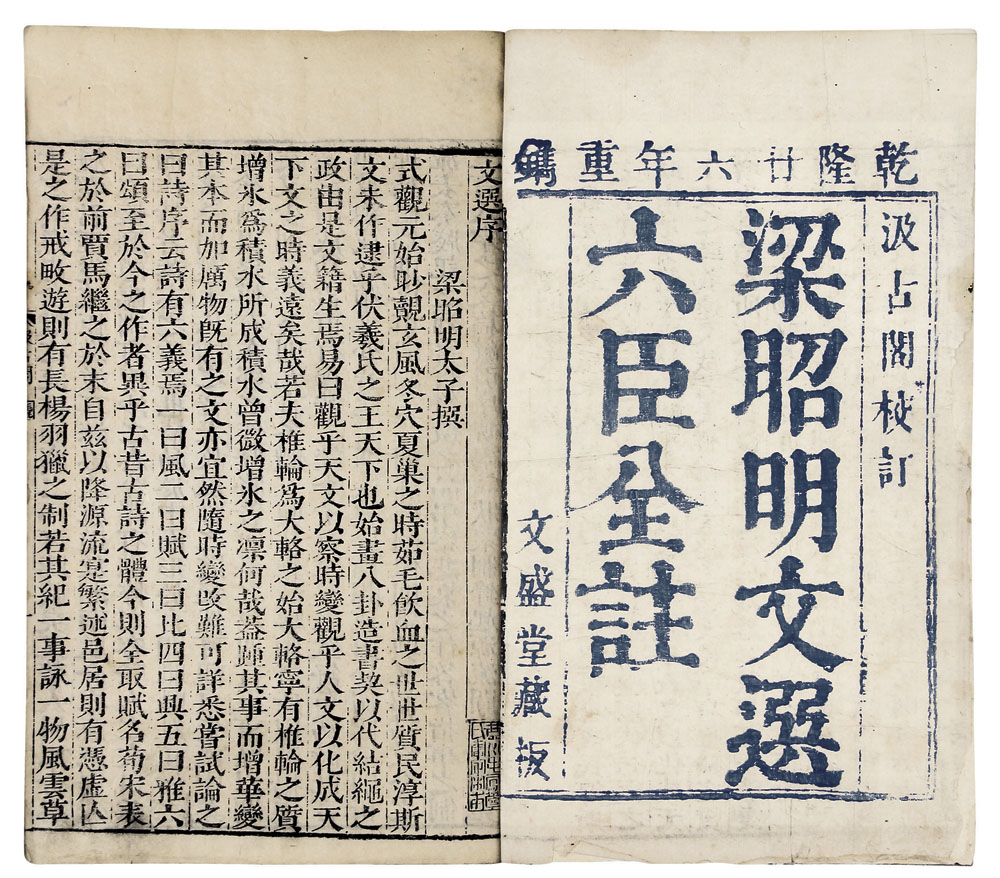 乾隆廿六年重鐫
汲古閣校訂
梁昭明文選
六臣全註
文盛堂藏板
文選序
梁昭明太子撰
式觀元始眇覿玄風冬穴夏巢之時茹毛飲血之世世質民淳斯
文未作逮乎伏羲氏之王天下也始畫八卦造書契以代結繩之
政由是文籍生焉易曰觀乎天文以察時變觀乎人文以化成天
下文之時義遠矣哉若夫椎輪爲大輅之始大輅寧有椎輪之質
增氷爲積水所成積水曾微增氷之凛何哉葢踵其事而增華變
其本而加厲物旣有之文亦宜然隨時變改難可詳悉嘗試論之
曰詩序云詩有六義焉一曰風二曰賦三曰比四曰興五曰雅六
曰頌至於今之作者異乎古昔古詩之體今則全取賦名荀宋表
之於前賈馬繼之於末自兹以降源流寔繁述邑居則有憑虛亾
是之作戒畋遊則有長楊羽獵之制若其紀一事詠一物風雲草